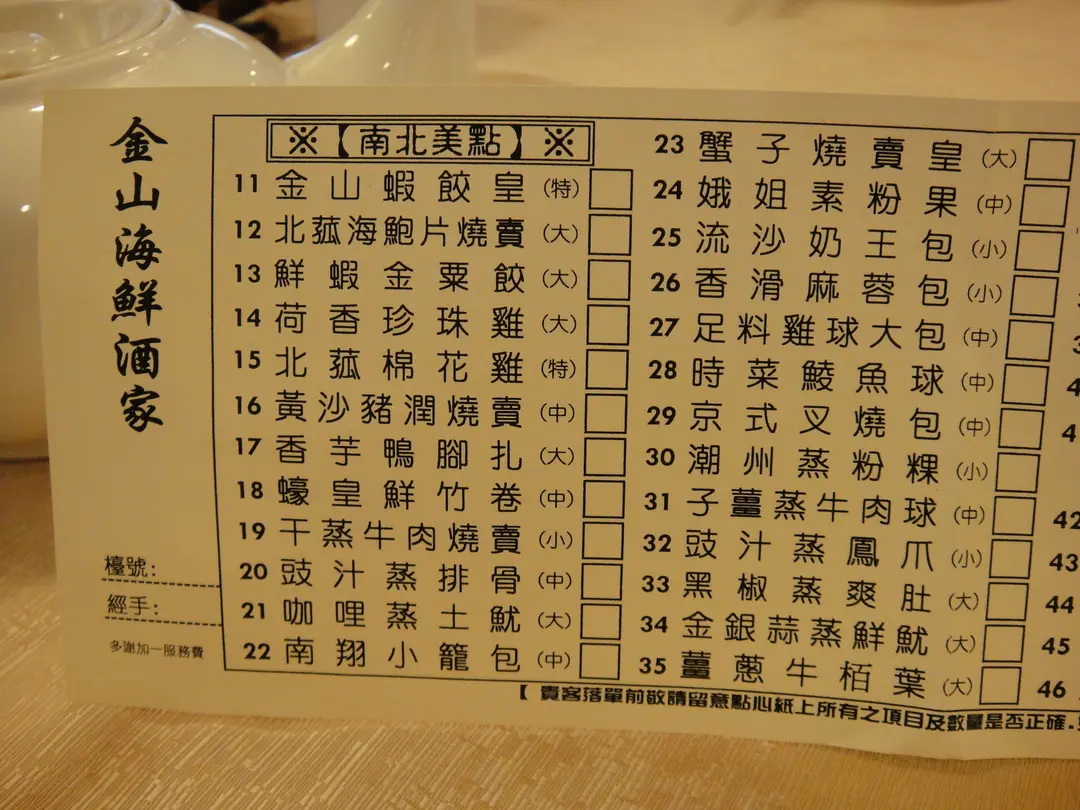 金山海鮮酒家
檯號:
經手:
多謝加一服務費
※【南北美點】※
11 金山蝦餃皇 (特)
12 北菰海鮑片燒賣 (大)
13 鮮蝦金粟餃 (大)
14 荷香珍珠雞 (大)
15 北菰棉花雞 (特)
16 黃沙豬潤燒賣 (中)
17 香芋鴨腳扎 (大)
18 蠔皇鮮竹卷 (中)
19 干蒸牛肉燒賣 (小)
20 豉汁蒸排骨 (中)
21 咖哩蒸土魷 (大)
22 南翔小籠包 (中)
23 蟹子燒賣皇 (大)
24 娥姐素粉果 (中)
25 流沙奶王包 (小)
26 香滑麻蓉包 (小)
27 足料雞球大包 (中)
28 時菜鯪魚球 (中)
29 京式叉燒包 (中)
30 潮州蒸粉粿 (小)
31 子薑蒸牛肉球 (中)
32 豉汁蒸鳳爪 (小)
33 黑椒蒸爽肚 (大)
34 金銀蒜蒸鮮魷 (大)
35 薑蔥牛栢葉 (大)
42
43
44
45
46
【 貴客落單前敬請留意點心紙上所有之項目及數量是否正確.